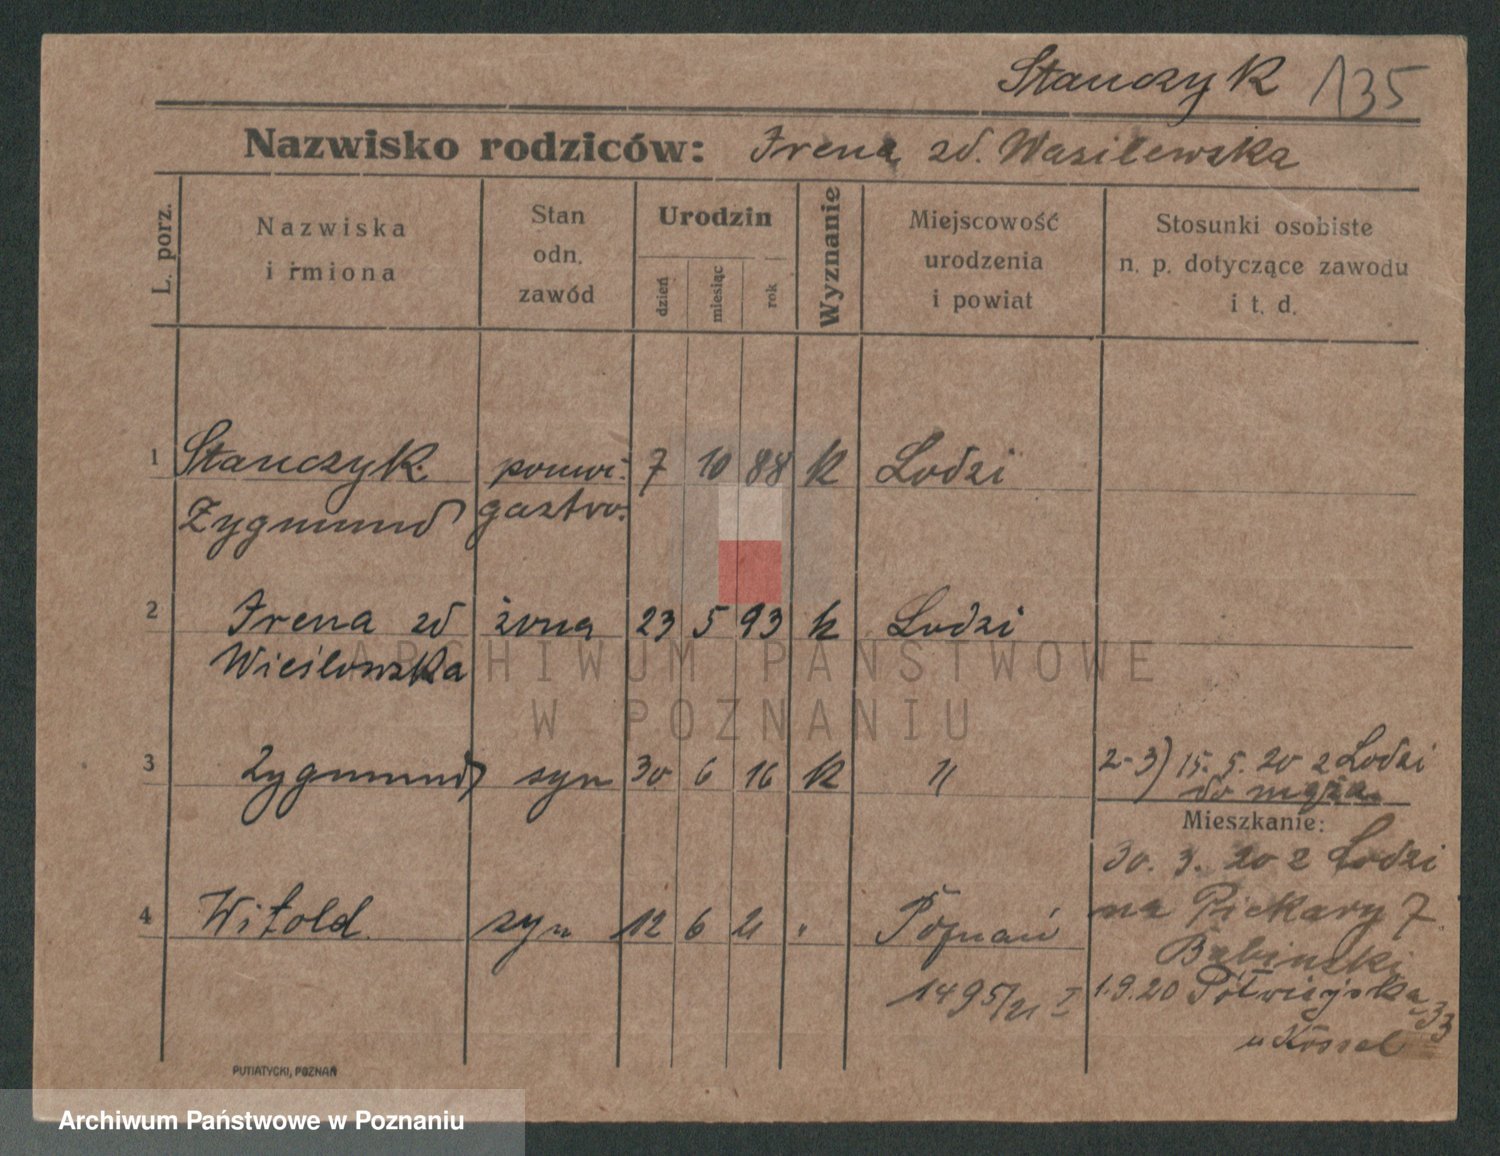 Stanczyk 135
Nazwisko rodziców: Irena zd. Wasilewska
L. porz.
Nazwiska
i imiona
Stan
odn.
zawód
Urodzin
dzień
miesiąc
rok
Wyznanie
Miejscowość
urodzenia
i powiat
Stosunki osobiste
n. p. dotyczące zawodu
i t. d.
1 Stanczyk 7 10 88 k Lodzi
Zygmund gastro.
2 Irena zd żona 23 5 93 k Lodzi
Wieslowska
3 Zygmund syn 30 6 16 k "
2-3) 15. 5. 20 z Lodzi
do męża
Mieszkanie:
30. 3. 20 z Lodzi
na Piekary 7
Babinski
4 Witold syn 12 6 21 " Poznań
1495/21 I
1.9.20 Półwiejska 33
u Kössel
PUTIATYCKI, POZNAŃ
ARCHIWUM PAŃSTWOWE
W POZNANIU
Archiwum Państwowe w Poznaniu